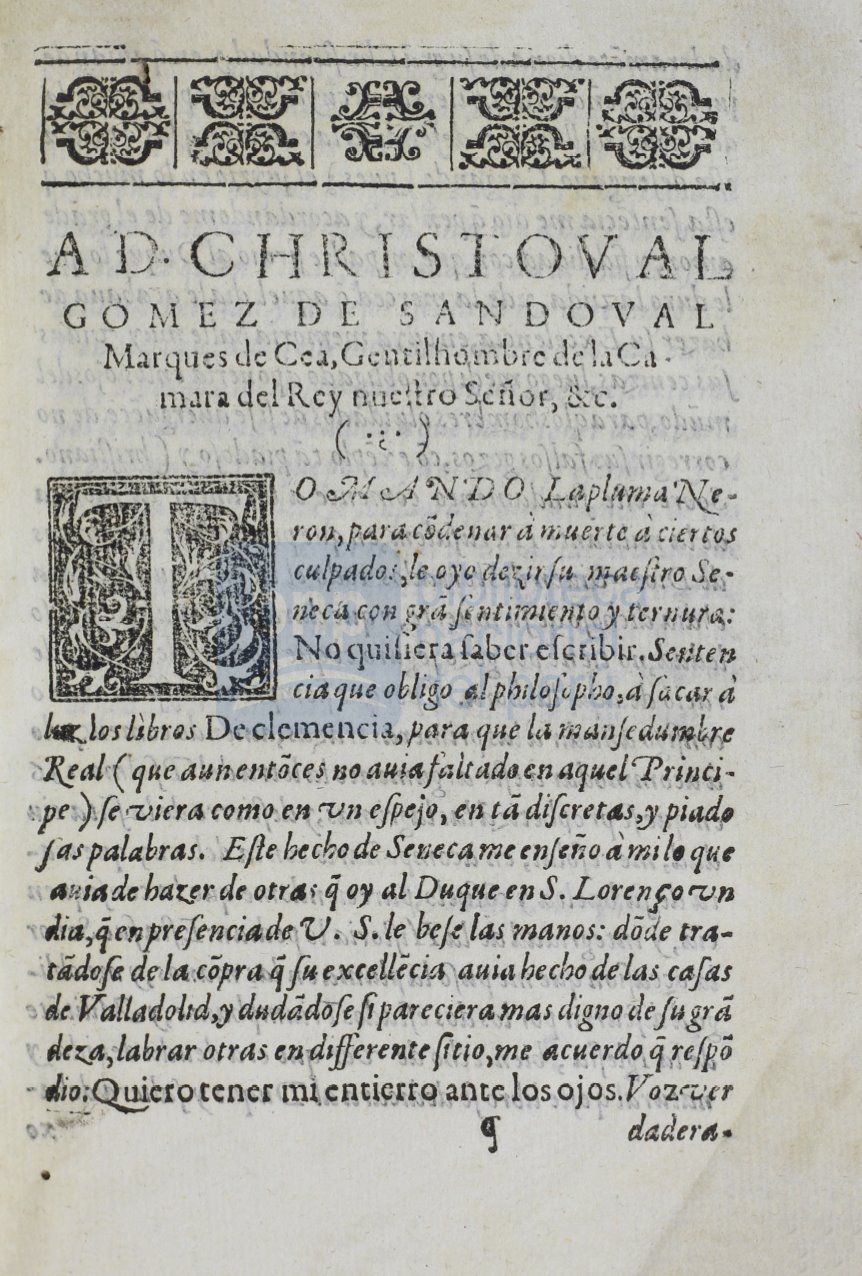 A D. CHRISTOVAL
GOMEZ DE SANDOVAL
Marques de Cea, Gentilhombre de la Ca-
mara del Rey nuestro Señor, &c.
TOMANDO La pluma Ne-
ron, para cõdenar à muerte à ciertos
culpados, le oyo dezir su maestro Se-
neca con grã sentimiento y ternura:
No quisiera saber escribir. Senten
cia que obligo al philosopho, à sacar à
luz los libros De clemencia, para que la mansedumbre
Real (que aun entõces no auia faltado en aquel Princi-
pe) se viera como en vn espejo, en tã discretas, y piado
sas palabras. Este hecho de Seneca me enseño à mi lo que
auia de hazer de otra: q̃ oy al Duque en S. Lorenço vn
dia, q̃ en presencia de V. S. le bese las manos: dõde tra-
tãdose de la cõpra q̃ su excellẽcia auia hecho de las casas
de Valladolid, y dudãdose si pareciera mas digno de su grã
deza, labrar otras en differente sitio, me acuerdo q̃ respõ
dio: Quiero tener mi entierro ante los ojos. Voz ver
¶ dadera-